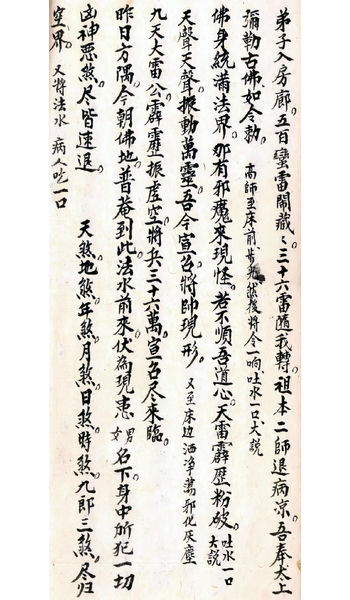 弟子入房廊。五百蠻雷閙藏〻。三十六雷随我轉。祖本二師退病凉。吾奉太上
彌勒古佛如令勅 高師至床前 然後將令一响吐水一口大説
佛身統滿法界。那有邪魔來現怪。若不順吾道心。天雷霹歷粉破。吐水一口大説
天聲天聲。振動萬靈。吾今宣召將帥現形。又至床边洒净 邪化灰塵
九天大雷公。霹靂振虚空。將兵三十六萬。宣召尽來臨。
昨日方隅。今朝佛地。普菴到此。法水前來。伏為現患男女名下身中所犯一切
凶神惡煞。尽皆速退。 天煞地煞。年煞月煞。日煞時煞。九郎三煞。尽归
空界。 又將法水 病人吃一口